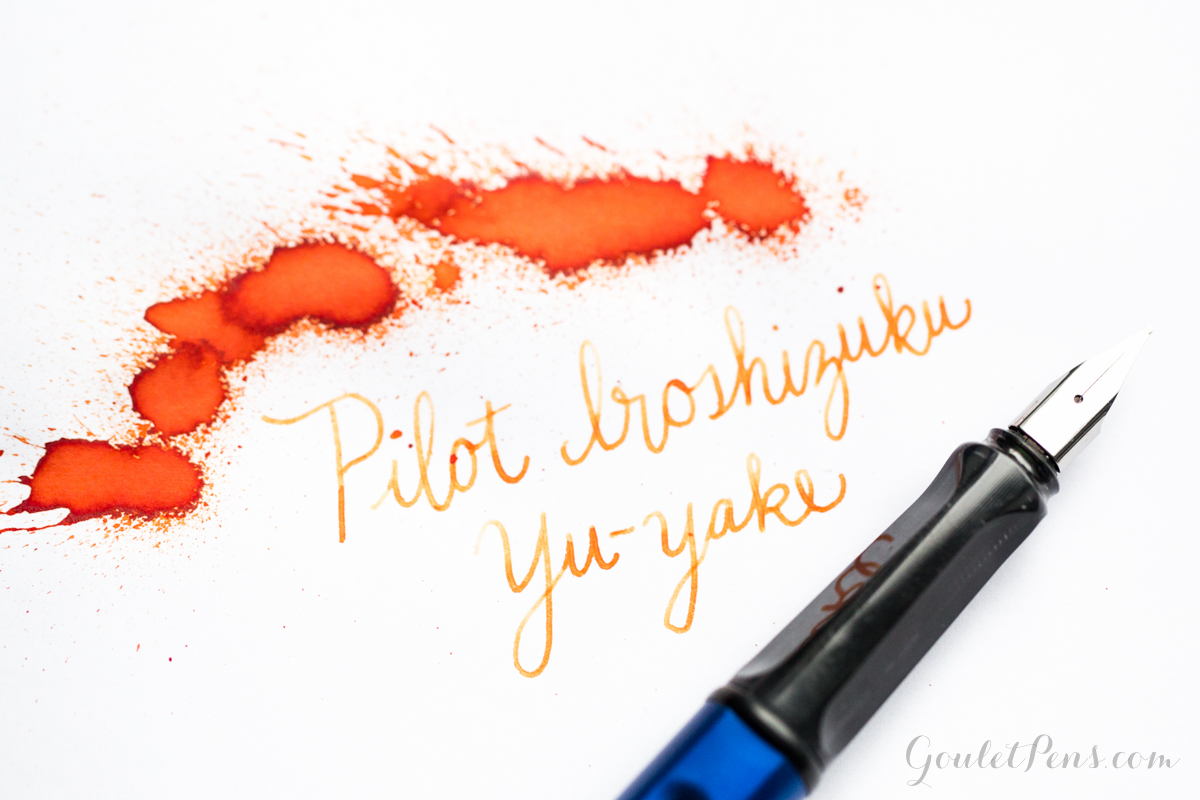 Pilot Iroshizuku
Yu-yake
GouletPens.com